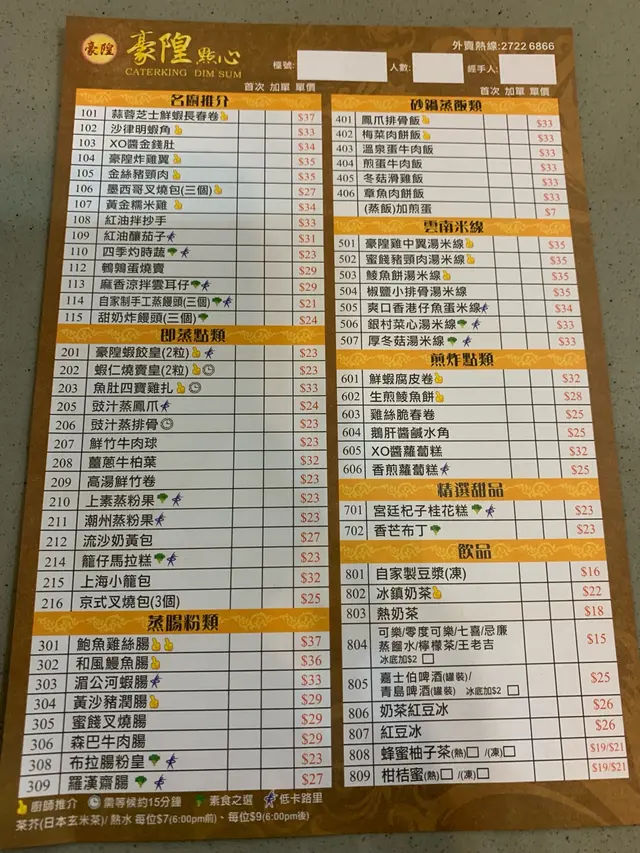 豪隍
豪隍 點心
CATERKING DIM SUM
外賣熱線:2722 6866
檯號:
人數:
經手人:
首次 加單 單價
首次 加單 單價
名廚推介
101 蒜蓉芝士鮮蝦長春卷 $37
102 沙律明蝦角 $33
103 XO醬金錢肚 $34
104 豪隍炸雞翼 $35
105 金絲豬頸肉 $35
106 墨西哥叉燒包(三個) $27
107 黃金糯米雞 $34
108 紅油拌抄手 $33
109 紅油釀茄子 $31
110 四季灼時蔬 $23
112 鵪鶉蛋燒賣 $29
113 麻香涼拌雲耳仔 $29
114 自家制手工蒸饅頭(三個) $21
115 甜奶炸饅頭(三個) $24
即蒸點類
201 豪隍蝦餃皇(2粒) $23
202 蝦仁燒賣皇(2粒) $23
203 魚肚四寶雞扎 $33
205 豉汁蒸鳳爪 $24
206 豉汁蒸排骨 $23
207 鮮竹牛肉球 $23
208 薑蔥牛柏葉 $32
209 高湯鮮竹卷 $23
210 上素蒸粉果 $23
211 潮州蒸粉果 $23
212 流沙奶黃包 $27
214 籠仔馬拉糕 $23
215 上海小籠包 $32
216 京式叉燒包(3個) $25
蒸腸粉類
301 鮑魚雞絲腸 $37
302 和風鰻魚腸 $36
303 湄公河蝦腸 $33
304 黃沙豬潤腸 $29
305 蜜餞叉燒腸 $29
306 森巴牛肉腸 $29
308 布拉腸粉皇 $23
309 羅漢齋腸 $27
砂鍋蒸飯類
401 鳳爪排骨飯 $33
402 梅菜肉餅飯 $33
403 溫泉蛋牛肉飯 $33
404 煎蛋牛肉飯 $33
405 冬菇滑雞飯 $33
406 章魚肉餅飯 $33
(蒸飯)加煎蛋 $7
雲南米線
501 豪隍雞中翼湯米線 $35
502 蜜餞豬頸肉湯米線 $35
503 鯪魚餅湯米線 $35
504 椒鹽小排骨湯米線 $35
505 爽口香港仔魚蛋米線 $34
506 銀村菜心湯米線 $33
507 厚冬菇湯米線 $33
煎炸點類
601 鮮蝦腐皮卷 $32
602 生煎鯪魚餅 $28
603 雞絲脆春卷 $25
604 鵝肝醬鹹水角 $25
605 XO醬蘿蔔糕 $32
606 香煎蘿蔔糕 $25
精選甜品
701 宮廷杞子桂花糕 $23
702 香芒布丁 $23
飲品
801 自家製豆漿(凍) $16
802 冰鎮奶茶 $22
803 熱奶茶 $18
804 可樂/零度可樂/七喜/忌廉
蒸餾水/檸檬茶/王老吉 $15
冰底加$2
805 嘉士伯啤酒(罐裝)/
青島啤酒(罐裝) 冰底加$2 $25
806 奶茶紅豆冰 $26
807 紅豆冰 $26
808 蜂蜜柚子茶(熱) /(凍) $19/$21
809 柑桔蜜(熱) /(凍) $19/$21
廚師推介 需等候約15分鐘 素食之選 低卡路里
茶芥(日本玄米茶)/ 熱水 每位$7(6:00pm前)、每位$9(6:00pm後)